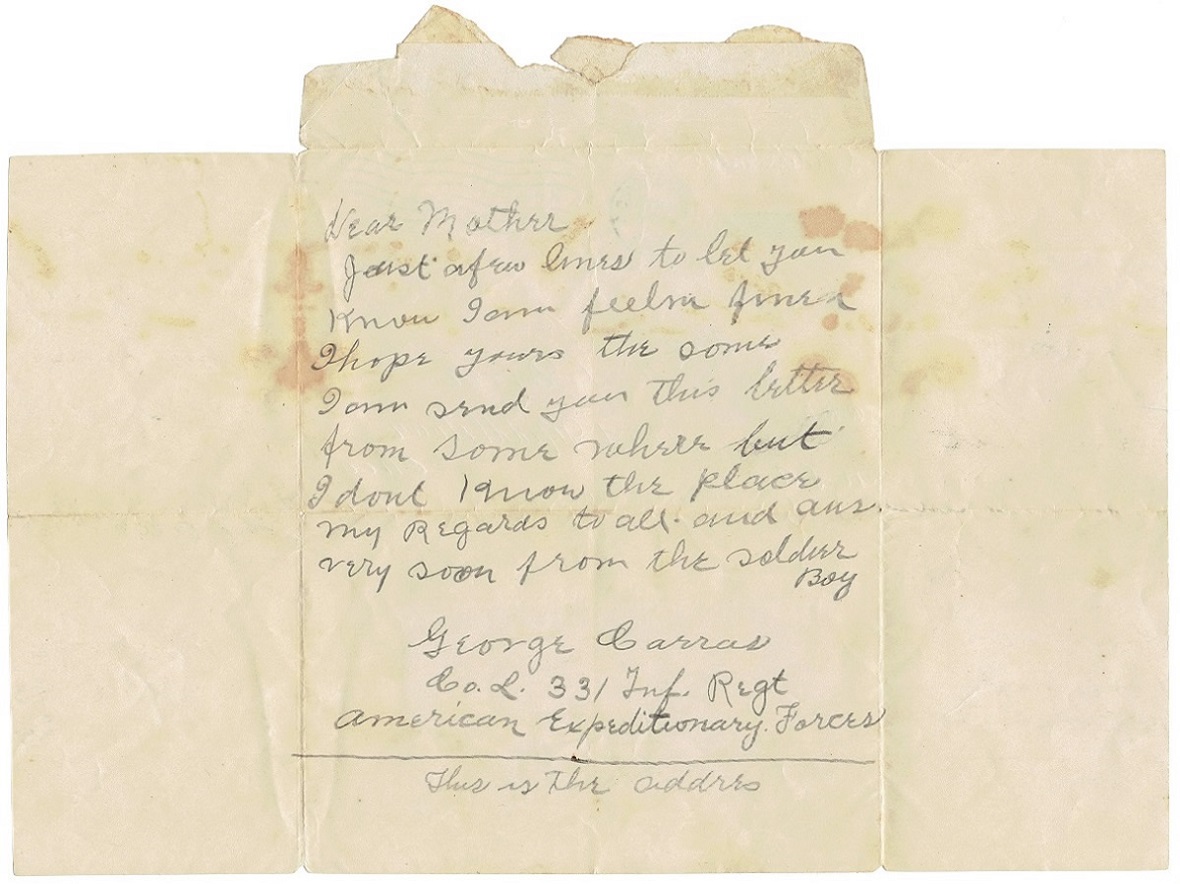 Dear Mother
Just a few lines to let you
Know I am feelin fine
I hope yours the some
I am send you this letter
from some where but
I dont Know the place
my Regards to all. and ans.
very soon from the soldier
Boy
George Carras
Co. L. 331 Inf. Regt
American Expeditionary. Forces
This is the addres